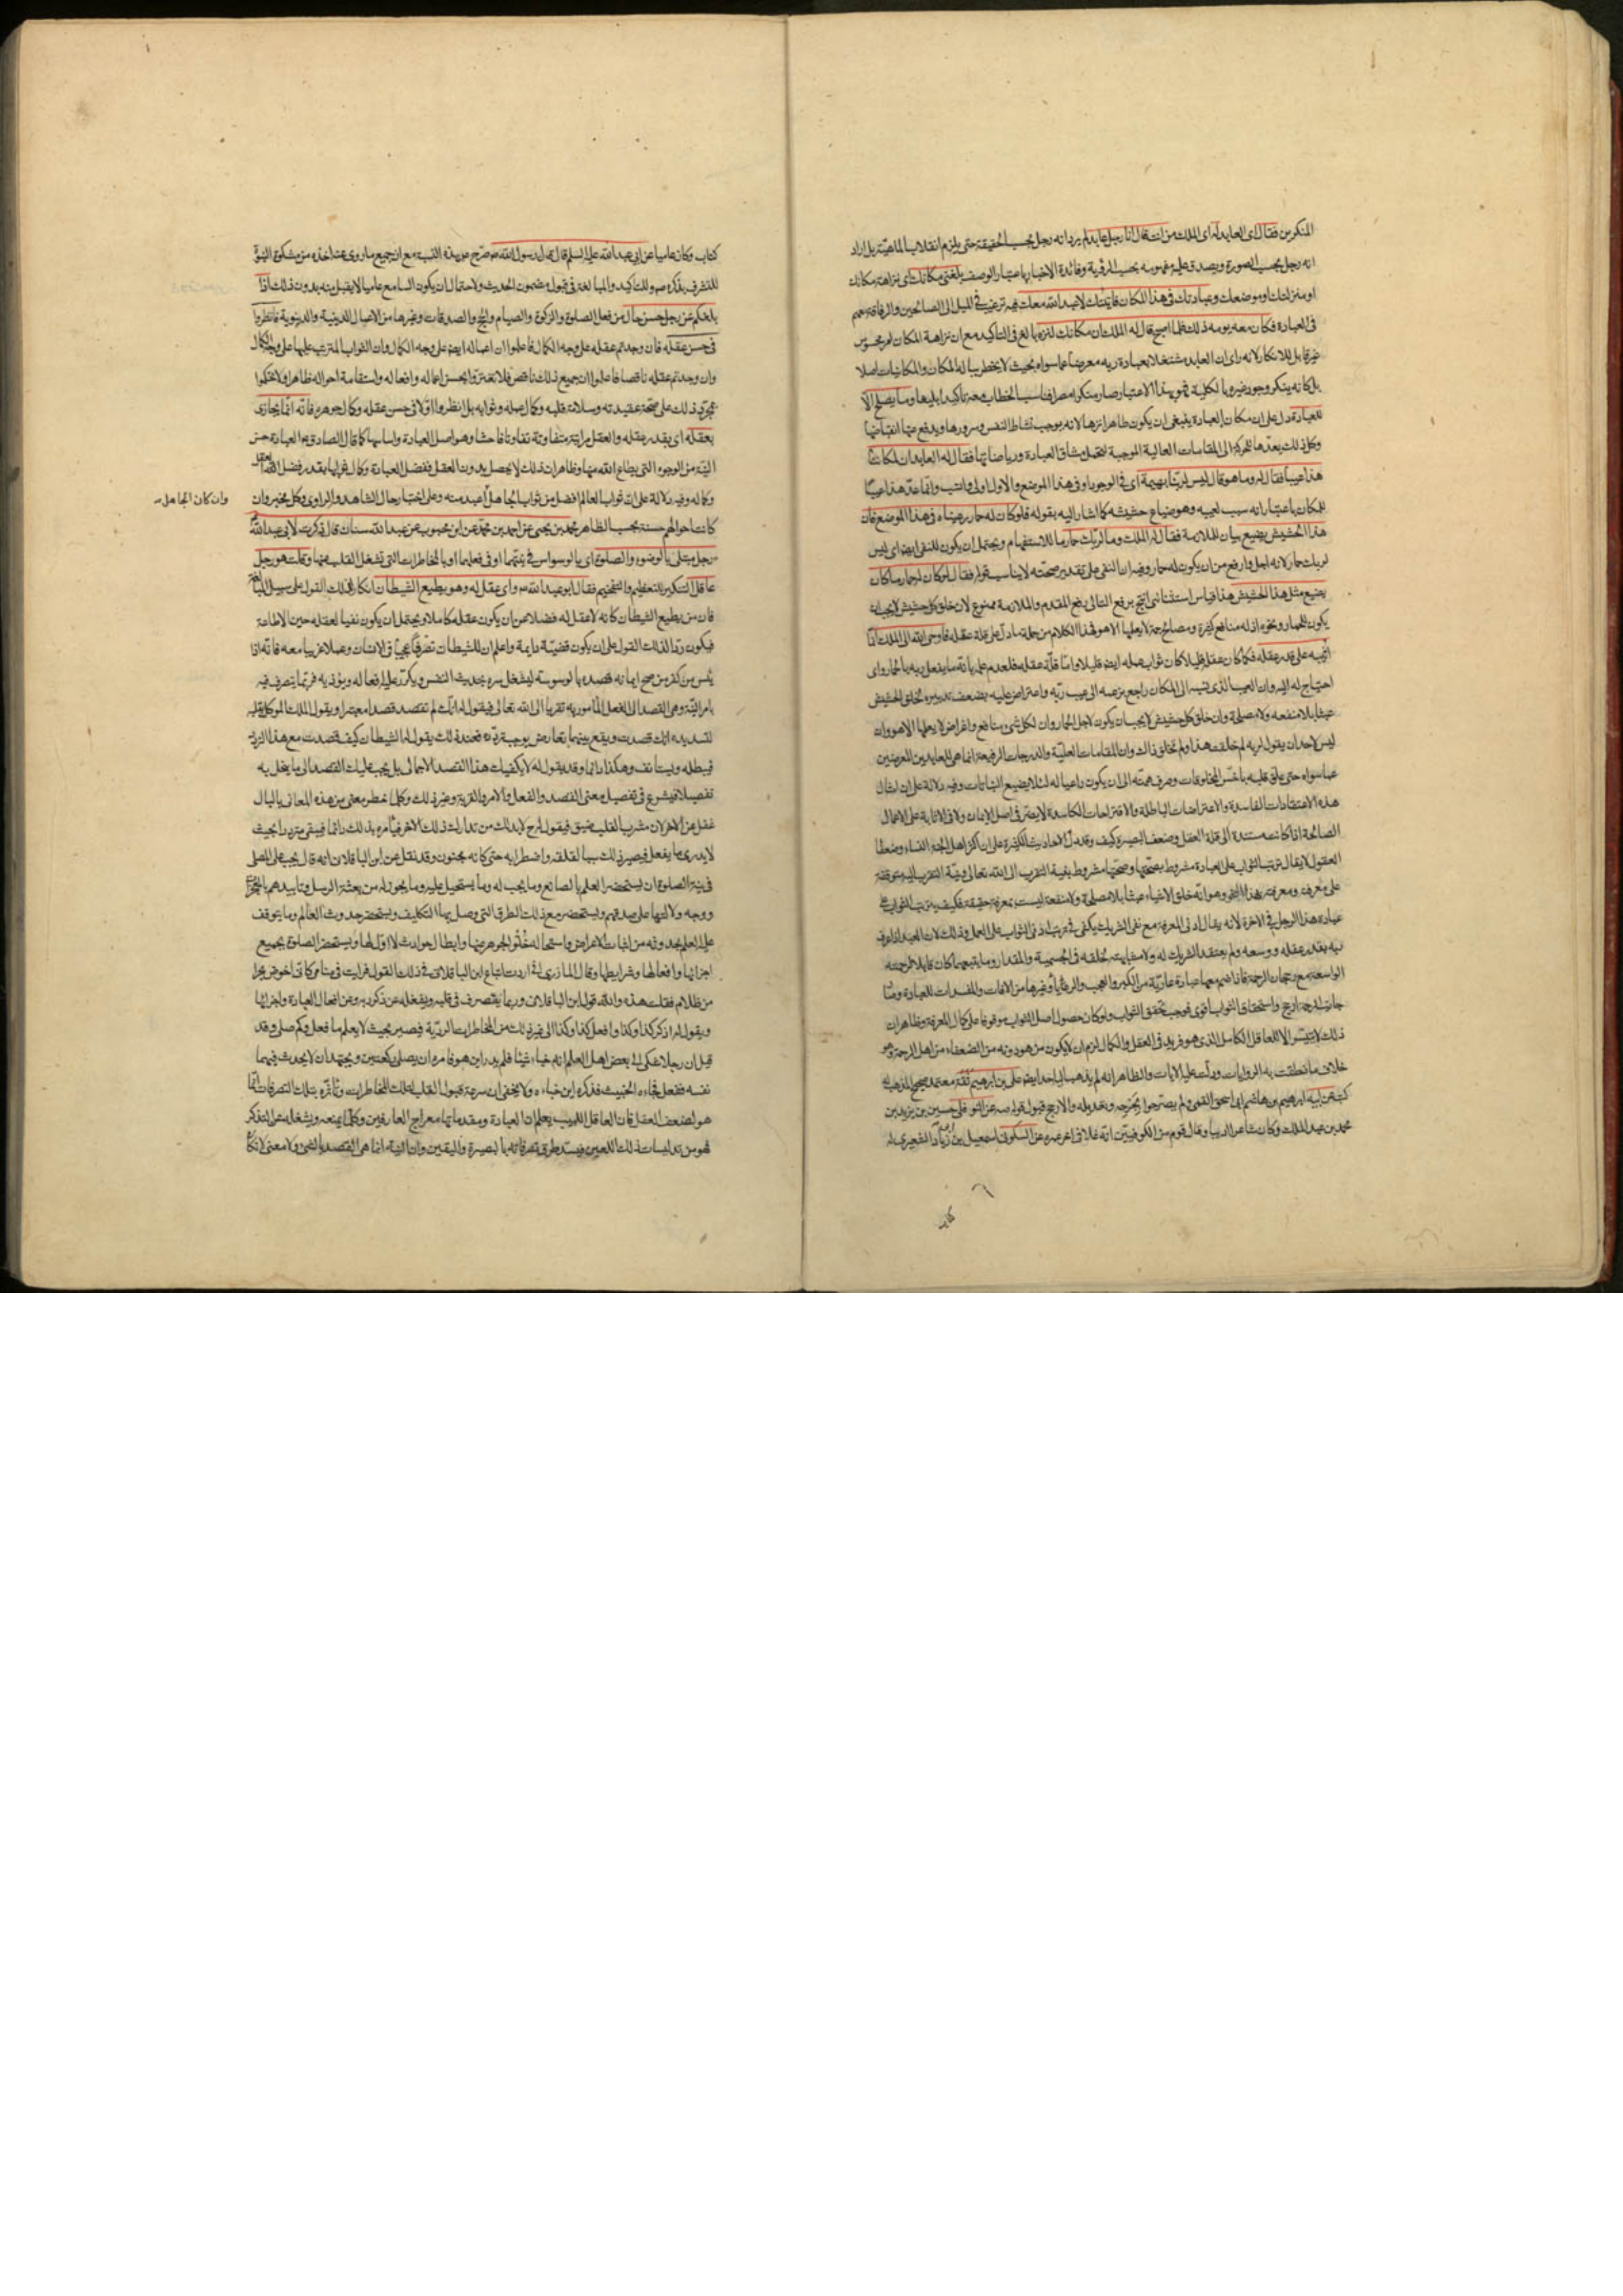 المنكرين فقال اى العابد له اى للملك من انت قال انا رجل عابد لم يرد انه رجل بحسب الحقيقة حتى يلزم انقلاب الماهية بل اراد
انه رجل بحسب الصورة ويصدق عليه مفهومه بحسب الرؤية وفائدة الاخبار باعتبار الوصف بلغنى مكانك اى نزاهة مكانك
او منزلتك او موضعك وعبادتك فى هذا المكان فاتيتك لاعبد الله معك فيه ترغيب فى الميل الى الصالحين والرفاقة معهم
فى العبادة فكان معه يومه ذلك فلما اصبح قال له الملك ان مكانك لنزه بالغ فى التاكيد مع ان نزاهة المكان امر محسوس
غير قابل للانكار لانه راى ان العابد مشتغلا بعبادة ربه معرضا عما سواه بحيث لا يخطر بباله المكان والمكانيات اصلا
بل كانه ينكر وجود غيره بالكلية فهو بهذا الاعتبار صار منكرا مصرا فناسب الخطاب معه تاكيدا بليغا وما يصلح الا
للعبادة دل على ان مكان العبادة ينبغى ان يكون طاهرا نزها لانه يوجب نشاط النفس وسرورها ويدفع عنها انقباضها
وكل ذلك يعدها للحركة الى المقامات العالية الموجبة لتحمل مشاق العبادة ورياضاتها فقال له العابد ان لمكاننا
هذا عيبا فقال له وما هو قال ليس لربنا بهيمة اى فى الوجود او فى هذا الموضع والاول اولى وانسب وانما عد هذا عيبا
للمكان باعتبار انه سبب لعيبه وهو ضياع حشيشه كما اشار اليه بقوله فلو كان له حمار رعيناه فى هذا الموضع فان
هذا الحشيش يضيع بيان للملازمة فقال له الملك وما لربك حمار ما للاستفهام ويحتمل ان يكون للنفى ايضا اى ليس
لربك حمار لانه اجل وارفع من ان يكون له حمار وفيه ان النفى على تقدير صحته لا يناسب قوله فقال لو كان له حمار ما كان
يضيع مثل هذا الحشيش هذا قياس استثنائى انتج برفع التالى رفع المقدم والملازمة ممنوع لان خلق كل حشيش لا يجب ان
يكون للحمار ونحوه اذ له منافع كثيرة ومصالح جمة لا يعلمها الا هو فهذا الكلام من جملة ما دل على قلة عقله فاوحى الله الى الملك انما
اثيبه على قدر عقله فكما كان عقله قليلا كان ثواب عمله ايضا قليلا واما قلة عقله فلعدم علمه بانه ما يفعل ربه بالحمار واى
احتياج له اليه وان العيب الذى نسبه الى المكان راجع بزعمه الى عيب ربه واعتراض عليه بضعف تدبيره لخلق الحشيش
عبثا بلا منفعة ولا مصلحة وان خلق كل حشيش لا يجب ان يكون لاجل الحمار وان لكل شىء منافع واغراض لا يعلمها الا هو وان
ليس لاحد ان يقول لربه لم خلقت هذا ولم تخلق ذاك وان المقامات العلية والدرجات الرفيعة انما هى للعابدين المعرضين
عما سواه حتى علق قلبه باخس المخلوقات وصرف همته الى ان يكون راعيا له لئلا يضيع النباتات وفيه دلالة على ان امثال
هذه الاعتقادات الفاسدة والاعتراضات الباطلة والاقتراحات الكاسدة لا يضر فى اصل الايمان ولا فى الاثابة على الاعمال
الصالحة اذا كانت مستندة الى قلة العقل وضعف البصيرة كيف وقد دل الاحاديث الكثيرة على ان اكثر اهل الجنة النساء وضعفا
العقول لا يقال ترتب الثواب على العبادة مشروط بصحتها وصحتها مشروط بنية التقرب الى الله تعالى ونية التقرب اليه متوقفة
على معرفته ومعرفته بهذا النحو وهو انه خلق الاشياء عبثا بلا مصلحة ولا منفعة ليست بمعرفة حقيقة فكيف يترتب الثواب على
عبادة هذا الرجل فى الاخرة لانه يقال ادنى المعرفة مع نفى الشريك يكفى فى ترتب ادنى الثواب على العمل وذلك لان العبد اذا عرف
ربه بقدر عقله ووسعه ولم يعتقد الشريك له ولا مشابهته لخلقه فى الجسمية والمقدار وما يتبعهما كان قابلا لرحمته
الواسعة مع رجحان الرحمة فاذا انضم معها عبادة عارية من الكبر والعجب والرياء وغيرها من الافات والمفسدات للعبادة
جانب الرحمة ارجح واستحقاق الثواب اقوى فوجب تحقق الثواب ولو كان حصول اصل الثواب موقوفا على كمال المعرفة وظاهر ان
ذلك لا يتيسر الا للعاقل الكامل الذى هو فريد فى العقل والكمال لزم ان لا يكون من هو دونه من الضعفاء من اهل الرحمة وهو
خلاف ما نطقت به الروايات ودلت عليه الايات والظاهر انه لم يذهب اليه احد ايضا على بن ابراهيم ثقة معتمد صحيح المذهب له
كتب عن ابيه ابراهيم بن هاشم ابى اسحق القمى ولم يصرحوا بجرحه وتعديله والارجح قبول قوله عن النوفلى حسين بن يزيد بن
محمد بن عبد الملك وكان شاعرا اديبا وقال قوم من الكوفيين انه غلا فى اخر عمره عن السكونى اسمعيل بن ابى زياد الشعيرى له
كتاب
كتاب وكان عاميا عن ابى عبد الله عليه السلم قال قال رسول الله صرح بهذه النسبة مع ان جميع ما روى عنه اخذه من مشكوة النبوة
للتشرف بذكره وللتاكيد والمبالغة فى قبول مضمون الحديث ولاحتمال ان يكون السامع عاميا لا يقبل منه بدون ذلك اذا
بلغكم عن رجل حسن حال من فعل الصلوة والزكوة والصيام والحج والصدقات وغيرها من الاعمال الدينية والدنيوية فانظروا
فى حسن عقله فان وجدتم عقله على وجه الكمال فاعلموا ان اعماله ايضا على وجه الكمال وان الثواب المترتب عليها على وجه الكمال
وان وجدتم عقله ناقصا فاعلموا ان جميع ذلك ناقص فلا تغتروا بحسن اعماله وافعاله واستقامة احواله ظاهرا ولا تحكموا
بمجرد ذلك على صحة عقيدته وسلامة قلبه وكمال عمله وثوابه بل انظروا اولا فى حسن عقله وكمال جوهره فانه انما يجازى
بعقله اى بقدر عقله والعقل مراتبه متفاوتة تفاوتا فاحشا وهو اصل العبادة واساسها كما قال الصادق العبادة حسن
النية من الوجوه التى يطاع الله منها وظاهر ان ذلك لا يحصل بدون العقل ففضل العبادة وكمال ثوابها بقدر فضل العقل
وكماله وفيه دلالة على ان ثواب العالم افضل من ثواب الجاهل وان كان الجاهل اعبد منه وعلى اختبار حال الشاهد والراوى وكل مخبر وان
كانت احوالهم حسنة بحسب الظاهر محمد بن يحيى عن احمد بن محمد عن ابن محبوب عن عبد الله سنان قال ذكرت لابى عبد الله
رجل مبتلى بالوضوء والصلوة اى بالوسواس فى نيتهما او فى فعلهما او بالمخاطرات التى تشغل القلب عنهما وقلت هو رجل
عاقل التنكير للتعظيم والتفخيم فقال ابو عبد الله واى عقل له وهو يطيع الشيطان انكار لذلك القول على سبيل المبالغة
فان من يطيع الشيطان كانه لا عقل له فضلا عن ان يكون عقله كاملا ويحتمل ان يكون نفيا لعقله حين الاطاعة
فيكون ردا لذلك القول على ان يكون قضية دايمة واعلم ان للشيطان تصرفا عجيبا فى الانسان وعملا غريبا معه فانه اذا
يئس من كفر من صح ايمانه قصده بالوسوسة ليشغل سره بحديث النفس ويكدر عليه افعاله ويؤذيه فربما يتصرف فيه
بامر النية وهى القصد الى الفعل المامور به تقربا الى الله تعالى فيقول له انك لم تقصد قصدا معتبرا ويقول الملك الموكل بقلبه
لتسديده انك قصدت ويقع بينهما تعارض يوجب تردده فعند ذلك يقول له الشيطان كيف قصدت مع هذا التردد
فيبطله ويستانف وهكذا دائما وقد يقول له لا يكفيك هذا القصد الاجمالى بل يجب عليك القصد الى ما يخل به
تفصيلا فيشرع فى تفصيل معنى القصد والفعل والامر والقربة وغير ذلك وكلما خطر معنى من هذه المعانى بالبال
غفل عن الاخر لان مشرب القلب ضيق فيقول له لا بد لك من تدارك ذلك الاخر فيأمره بذلك دائما فيبقى مترددا بحيث
لا يدرى ما يفعل فيصير ذلك سببا لقلقه واضطرابه حتى كانه مجنون وقد نقل عن ابن الباقلانى انه قال يجب على المصلى
فى نية الصلوة ان يستحضر العلم بالصانع وما يجب له وما يستحيل عليه وما يجوز له من بعثة الرسل وتاييدهم بالمعجزات
ووجه دلالتها على صدقهم ويستحضر مع ذلك الطرق التى وصل بها التكليف ويستحضر حدوث العالم وما يتوقف
عليه العلم بحدوثه من اثبات الاعراض واستحالة خلو الجوهر عنها وابطال حوادث لا اول لها ويستحضر الصلوة بجميع
اجزائها وافعالها وشرايطها وقال المازرى اردت اتباع ابن الباقلانى فى ذلك القول فرايت فى منامى كانى اخوض بحرا
من ظلام فقلت هذه والله قول ابن الباقلانى وربما يتصرف فى قلبه ويغفله عن ذكر ربه وعن افعال العبادة واجزائها
ويقول له اذكر كذا وكذا وافعل كذا وكذا الى غير ذلك من المخاطرات الردية فيصير بحيث لا يعلم ما فعل وكم صلى وقد
قيل ان رجلا شكى الى بعض اهل العلم انه خباء شيئا فلم يدر اين هو فامره ان يصلى ركعتين ويجتهد ان لا يحدث فيهما
نفسه ففعل فجاءه الخبيث فذكره اين خباءه ولا يخفى ان سرعة قبول القلب لتلك المخاطرات وتأثره بتلك التصرفات انما
هو لضعف العقل فان العاقل اللبيب يعلم ان العبادة ومقدماتها معراج العارفين وكلما يمنعه ويشغله عن التفكر
فهو من تدليسات ذلك اللعين فيسد طرق تصرفاته بالبصيرة واليقين وان النية انما هى القصد
وان كان الجاهل